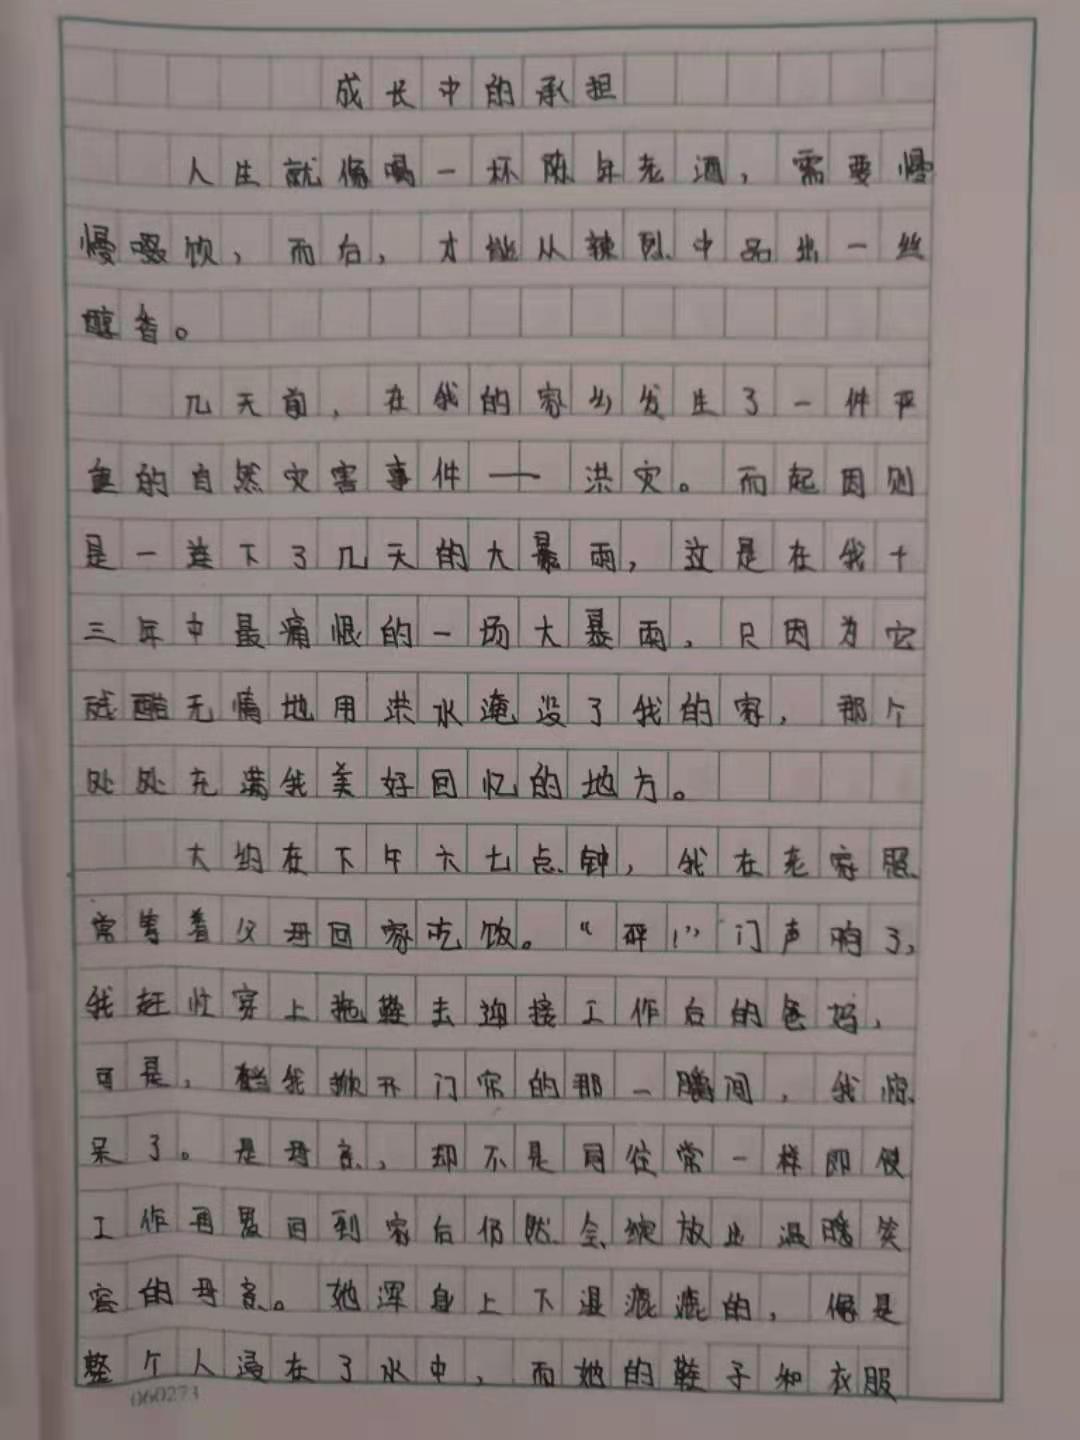 成长中的承担
人生就像喝一杯陈年老酒，需要慢
慢啜饮，而后，才能从辣烈中品出一丝
醇香。
几天前，在我的家乡发生了一件严
重的自然灾害事件——洪灾。而起因则
是一连下了几天的大暴雨，这是在我十
三年中最痛恨的一场大暴雨，只因为它
残酷无情地用洪水淹没了我的家，那个
处处充满我美好回忆的地方。
大约在下午六七点钟，我在老家照
常等着父母回家吃饭。“砰！”门声响了，
我赶忙穿上拖鞋去迎接工作后的爸妈，
可是，当我掀开门帘的那一瞬间，我惊
呆了。是母亲，却不是同往常一样即使
工作再累回到家后仍然会绽放出温暖笑
容的母亲。她浑身上下湿漉漉的，像是
整个人浸在了水中，而她的鞋子和衣服
060273